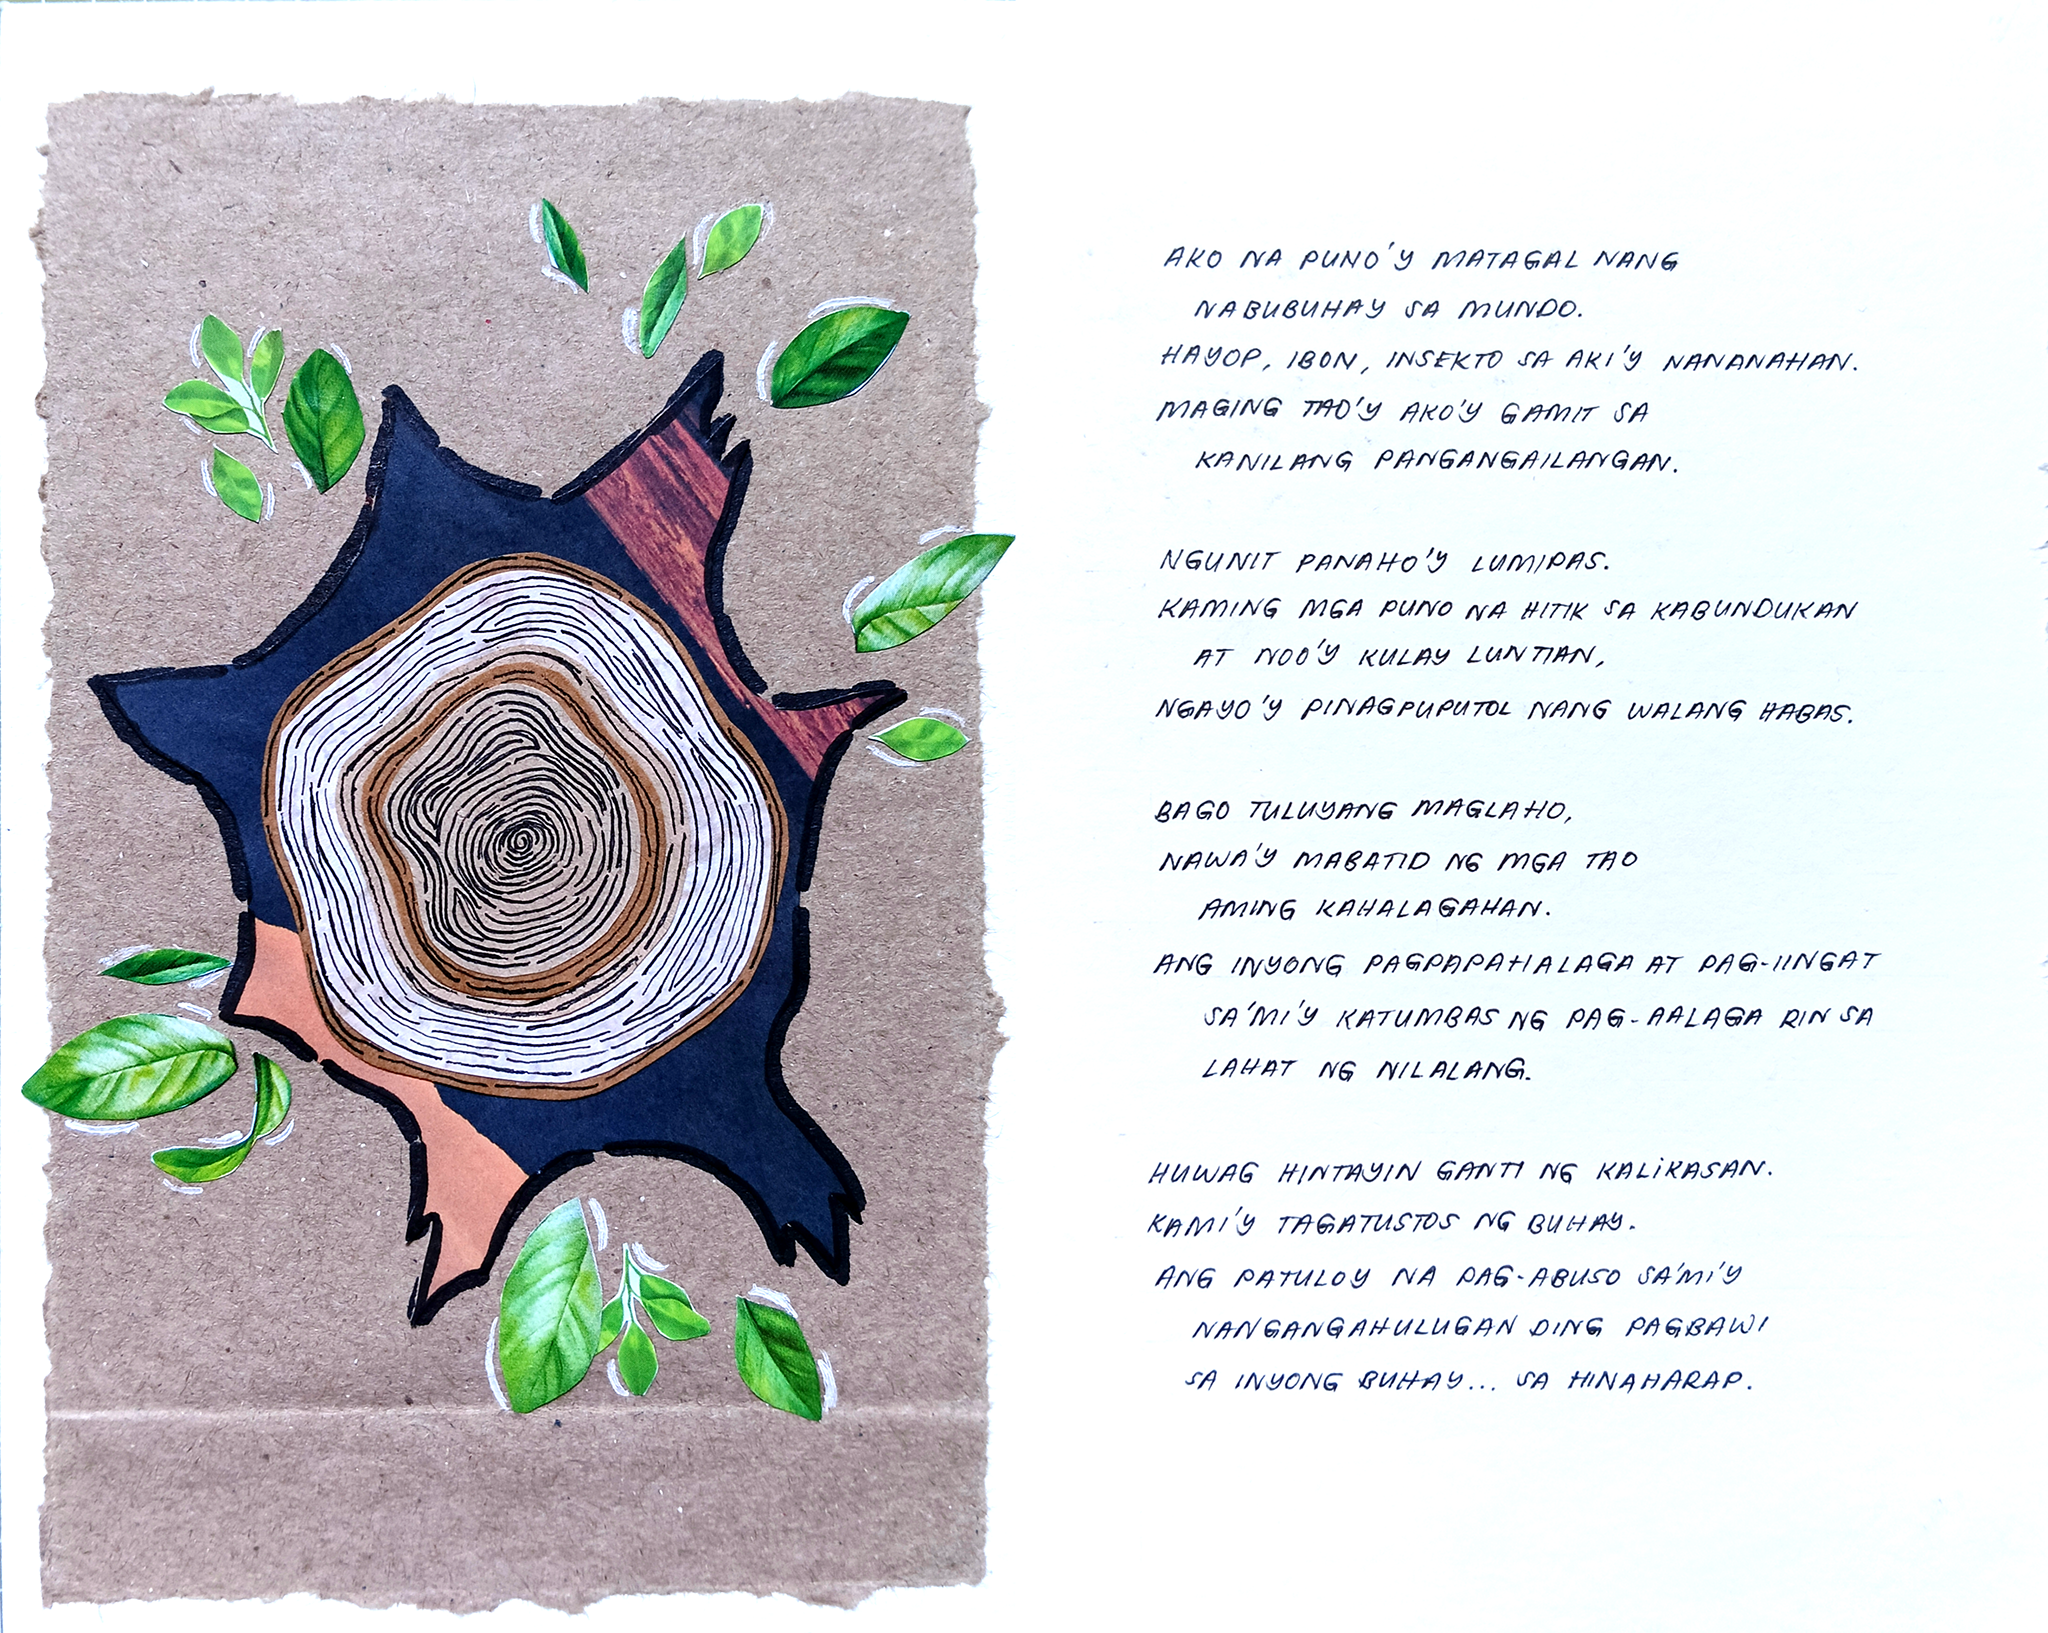 AKO NA PUNO'Y MATAGAL NANG
NABUBUHAY SA MUNDO.
HAYOP, IBON, INSEKTO SA AKI'Y NANANAHAN.
MAGING TAO'Y AKO'Y GAMIT SA
KANILANG PANGANGAILANGAN.
NGUNIT PANAHO'Y LUMIPAS.
KAMING MGA PUNO NA HITIK SA KABUNDUKAN
AT NOO'Y KULAY LUNTIAN,
NGAYO'Y PINAGPUPUTOL NANG WALANG HABAS.
BAGO TULUYANG MAGLAHO,
NAWA'Y MABATID NG MGA TAO
AMING KAHALAGAHAN.
ANG INYONG PAGPAPAHALAGA AT PAG-IINGAT
SA'MI'Y KATUMBAS NG PAG-AALAGA RIN SA
LAHAT NG NILALANG.
HUWAG HINTAYIN GANTI NG KALIKASAN.
KAMI'Y TAGATUSTOS NG BUHAY.
ANG PATULOY NA PAG-ABUSO SA'MI'Y
NANGANGAHULUGAN DING PAGBAWI
SA INYONG BUHAY... SA HINAHARAP.